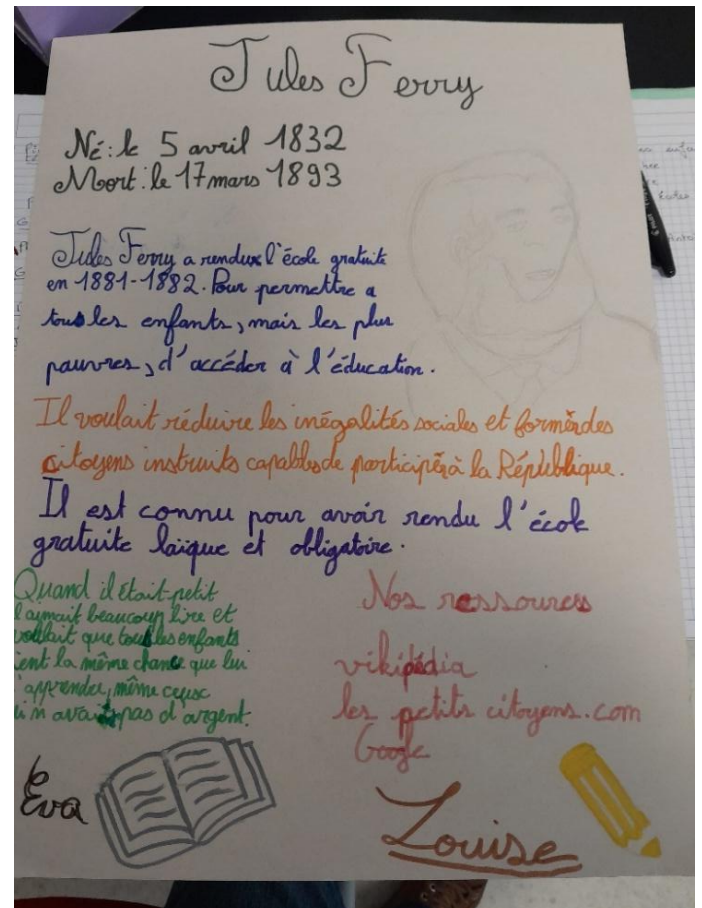 Jules Ferry
Né: le 5 avril 1832
Mort: le 17 mars 1893
Jules Ferry a rendu l'école gratuite
en 1881-1882. Pour permettre a
tous les enfants, mais les plus
pauvres, d'accéder à l'éducation.
Il voulait réduire les inégalités sociales et formèr des
citoyens instruits capables de participér à la République.
Il est connu pour avoir rendu l'école
gratuite laïque et obligatoire.
Quand il était petit
l aimait beaucoup lire et
voulait que tous les enfants
ient la même chance que lui
apprendre, même ceux
i n avait pas d'argent.
Nos ressources
vikipédia
les petits citoyens.com
Google
Eva
Louise